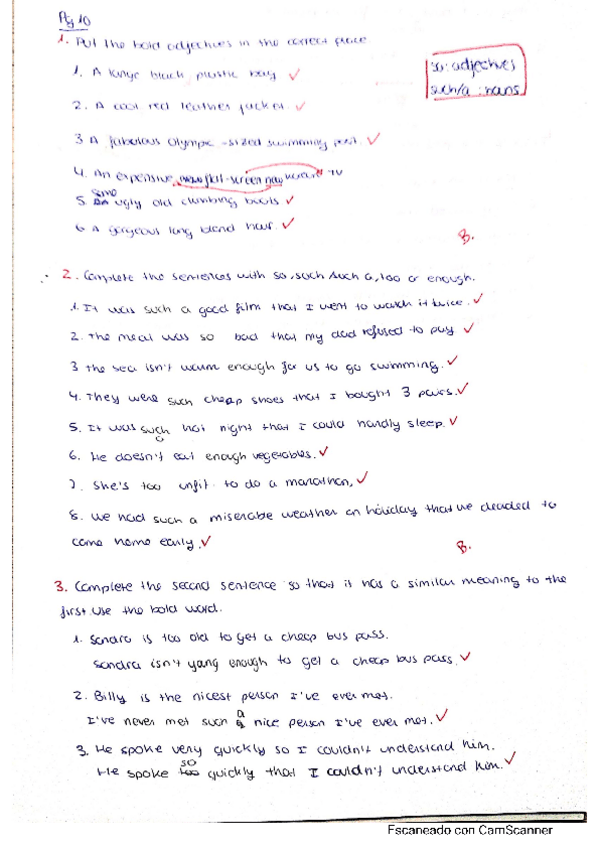 Pg 10
1. Put the bold adjectives in the correct place
so: adjectives
such/a: nans
1. A large black plastic bag ✓
2. A cool red leather jacket ✓
3 A fabulous Olympic-sized swimming pool. ✓
4. An expensive flat-screen new TV
5. Some ugly old climbing boots ✓
6 A gorgeous long blend hair ✓
B.
2. Complete the sentences with so, such, such a, too or enough.
1. It was such a good film that I went to watch it twice. ✓
2. The meal was so bad that my dad refused to pay ✓
3 The sea isn't warm enough for us to go swimming. ✓
4. They were such cheap shoes that I bought 3 pairs. ✓
5. It was such a hot night that I could hardly sleep. ✓
6. He doesn't eat enough vegetables. ✓
7. She's too unfit to do a marathon, ✓
8. We had such a miserable weather on holiday that we decided to
come home early. ✓
B.
3. Complete the second sentence so that it has a similar meaning to the
first. Use the bold word.
1. Sandra is too old to get a cheap bus pass.
Sandra isn't yang enough to get a cheap bus pass. ✓
2. Billy is the nicest person I've ever met.
I've never met such a nice person I've ever met. ✓
3. He spoke very quickly so I couldn't understand him.
He spoke so quickly that I couldn't understand him. ✓
Escaneado con CamScanner